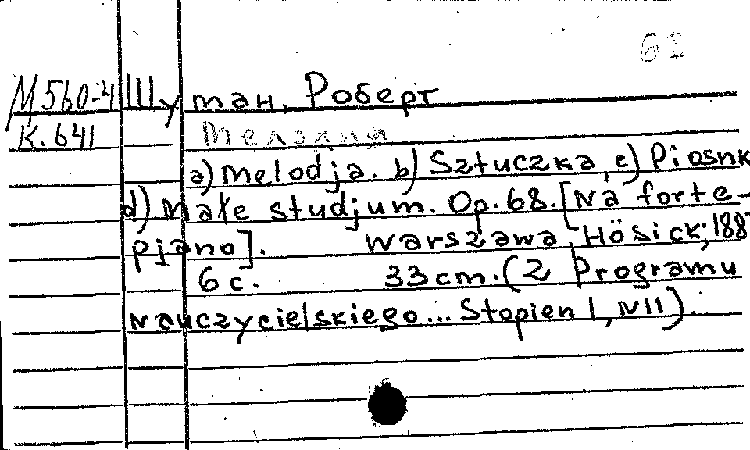 61
М560-4 Шуман, Роберт
К. 641 Мелодия
a) Melodja. b) Sztuczka, c) Piosnk
d) Małe studjum. Op. 68. [Na forte-
pjano]. Warszawa, Hösick, 188
6 c. 33 cm. (Z Programu
Nauczycielskiego... Stopien I, N II).